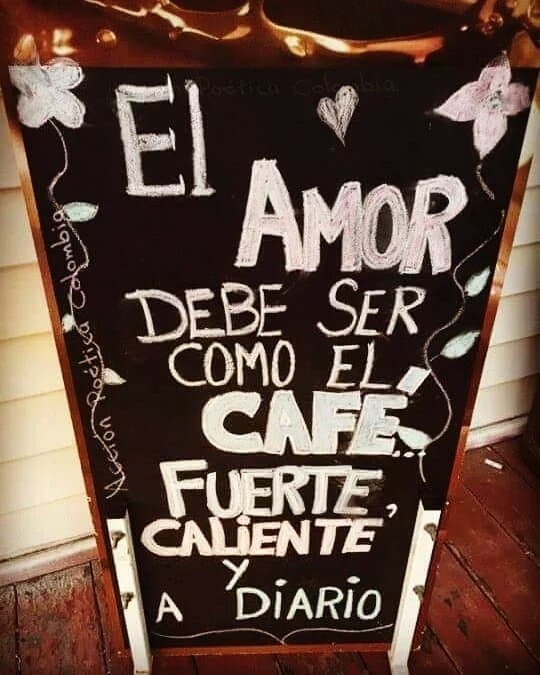 Poética Colombia
El
AMOR
DEBE SER
COMO EL
CAFÉ...
FUERTE,
CALIENTE
Y
A DIARIO
Acción Poética Colombia